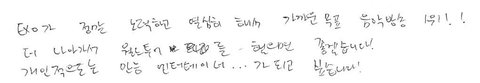 EXO가 정말 노력하고 열심히 해서 가까운 목표 음악방송 1위!!
더 나아가서 월드투어 를 했으면 좋겠습니다.
개인적으로는 만능 엔터테이너...가 되고 싶습니다!